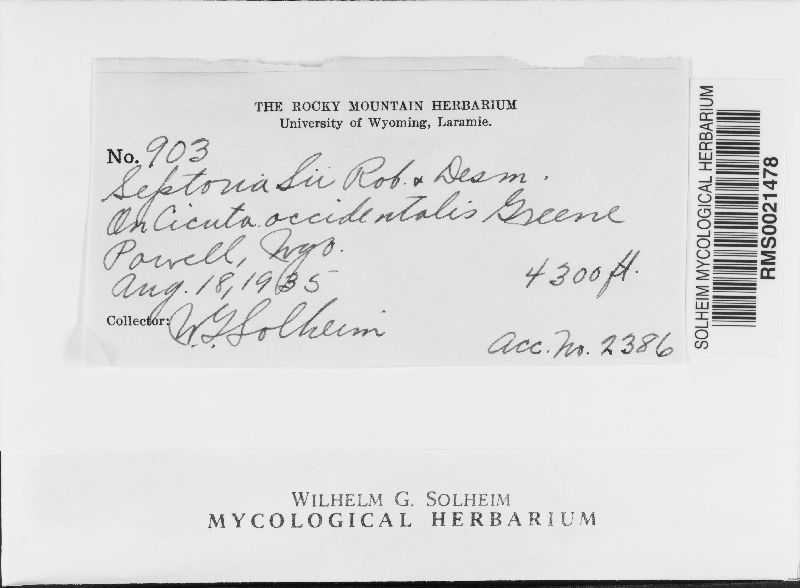 THE ROCKY MOUNTAIN HERBARIUM
University of Wyoming, Laramie.
No. 903
Septoria Sii Rob. & Desm.
On Cicuta occidentalis Greene
Powell, Wyo.
4300 ft.
Aug. 18, 1935
Collector: W.G. Solheim
Acc. No. 2386
SOLHEIM MYCOLOGICAL HERBARIUM
RMS0021478
WILHELM G. SOLHEIM
MYCOLOGICAL HERBARIUM